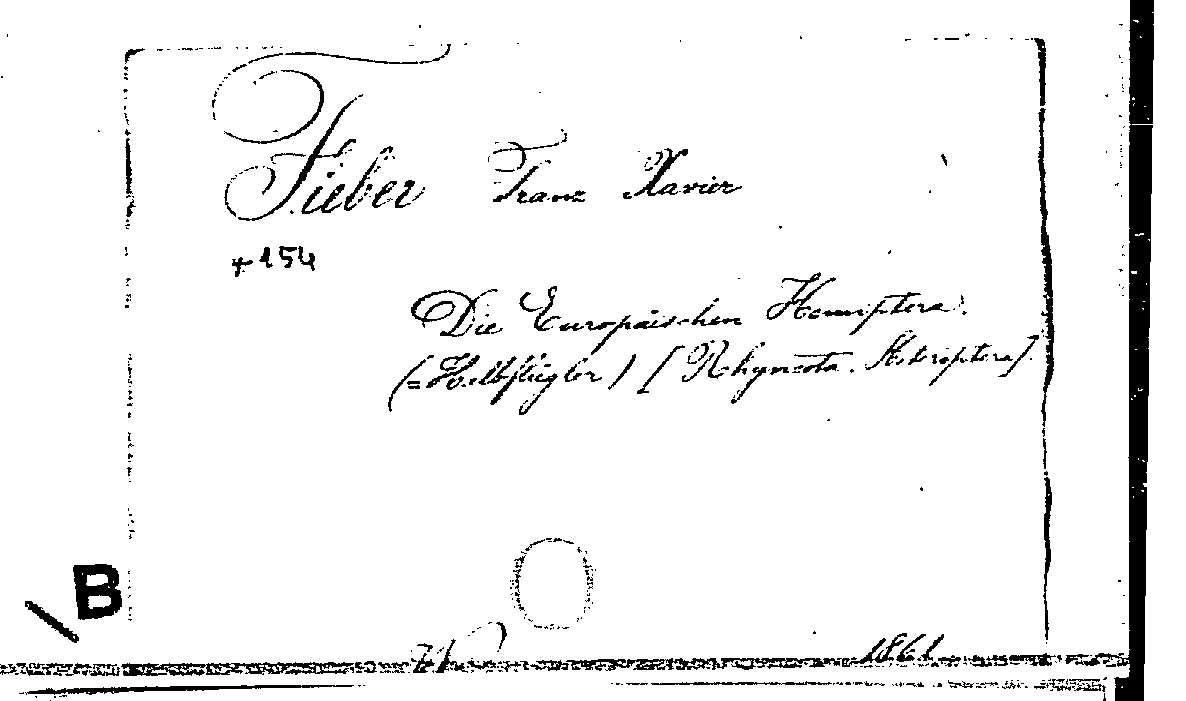 Fieber Franz Xavier
+154
Die Europäischen Hemiptera.
(=Halbflügler) [Rhynchota. Heteroptera].
B
1861